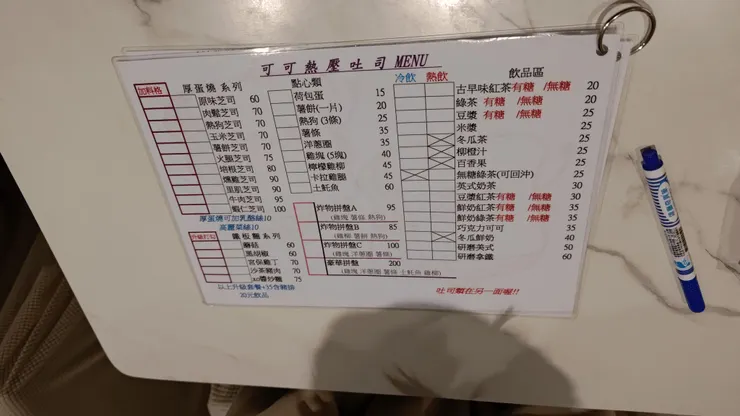 可可熱壓吐司MENU
加料格
厚蛋燒系列
原味芝司 60
肉鬆芝司 70
熱狗芝司 70
玉米芝司 70
薯餅芝司 70
火腿芝司 75
培根芝司 80
燻雞芝司 90
里肌芝司 90
牛肉芝司 95
蝦仁芝司 100
厚蛋燒可加乳酪絲10
高麗菜絲10
鐵板麵系列
蘑菇 60
黑胡椒 60
宮保雞丁 70
沙茶豬肉 70
xo醬炒麵 75
以上升級套餐+35含豬排
30元飲品
點心類
荷包蛋 15
薯餅(一片) 20
熱狗(3條) 25
薯條 35
洋蔥圈 35
雞塊(5塊) 40
檸檬雞柳 45
卡拉雞腿 45
土魠魚 60
炸物拼盤A 95
(雞塊 薯條 熱狗)
炸物拼盤B 85
(雞柳 薯餅 熱狗)
炸物拼盤C 100
(雞塊 洋蔥圈 薯條)
豪華拼盤 200
(雞塊 洋蔥圈 薯條 土魠魚 雞柳)
冷飲 熱飲 飲品區
古早味紅茶有糖 /無糖 20
綠茶 有糖 /無糖 20
豆漿 有糖 /無糖 25
米漿 25
冬瓜茶 25
柳橙汁 25
百香果 25
無糖綠茶(可回沖) 25
英式奶茶 30
豆漿紅茶有糖 /無糖 30
鮮奶紅茶有糖 /無糖 35
鮮奶綠茶有糖 /無糖 35
巧克力可可 35
冬瓜鮮奶 40
研磨美式 50
研磨拿鐵 60
吐司類在另一面喔!!